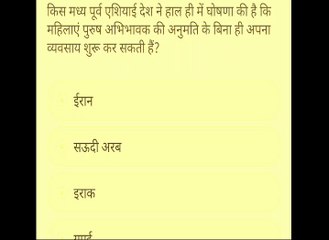 किस मध्य पूर्व एशियाई देश ने हाल ही में घोषणा की है कि
महिलाएं पुरुष अभिभावक की अनुमति के बिना ही अपना
व्यवसाय शुरू कर सकती हैं?
ईरान
सऊदी अरब
इराक